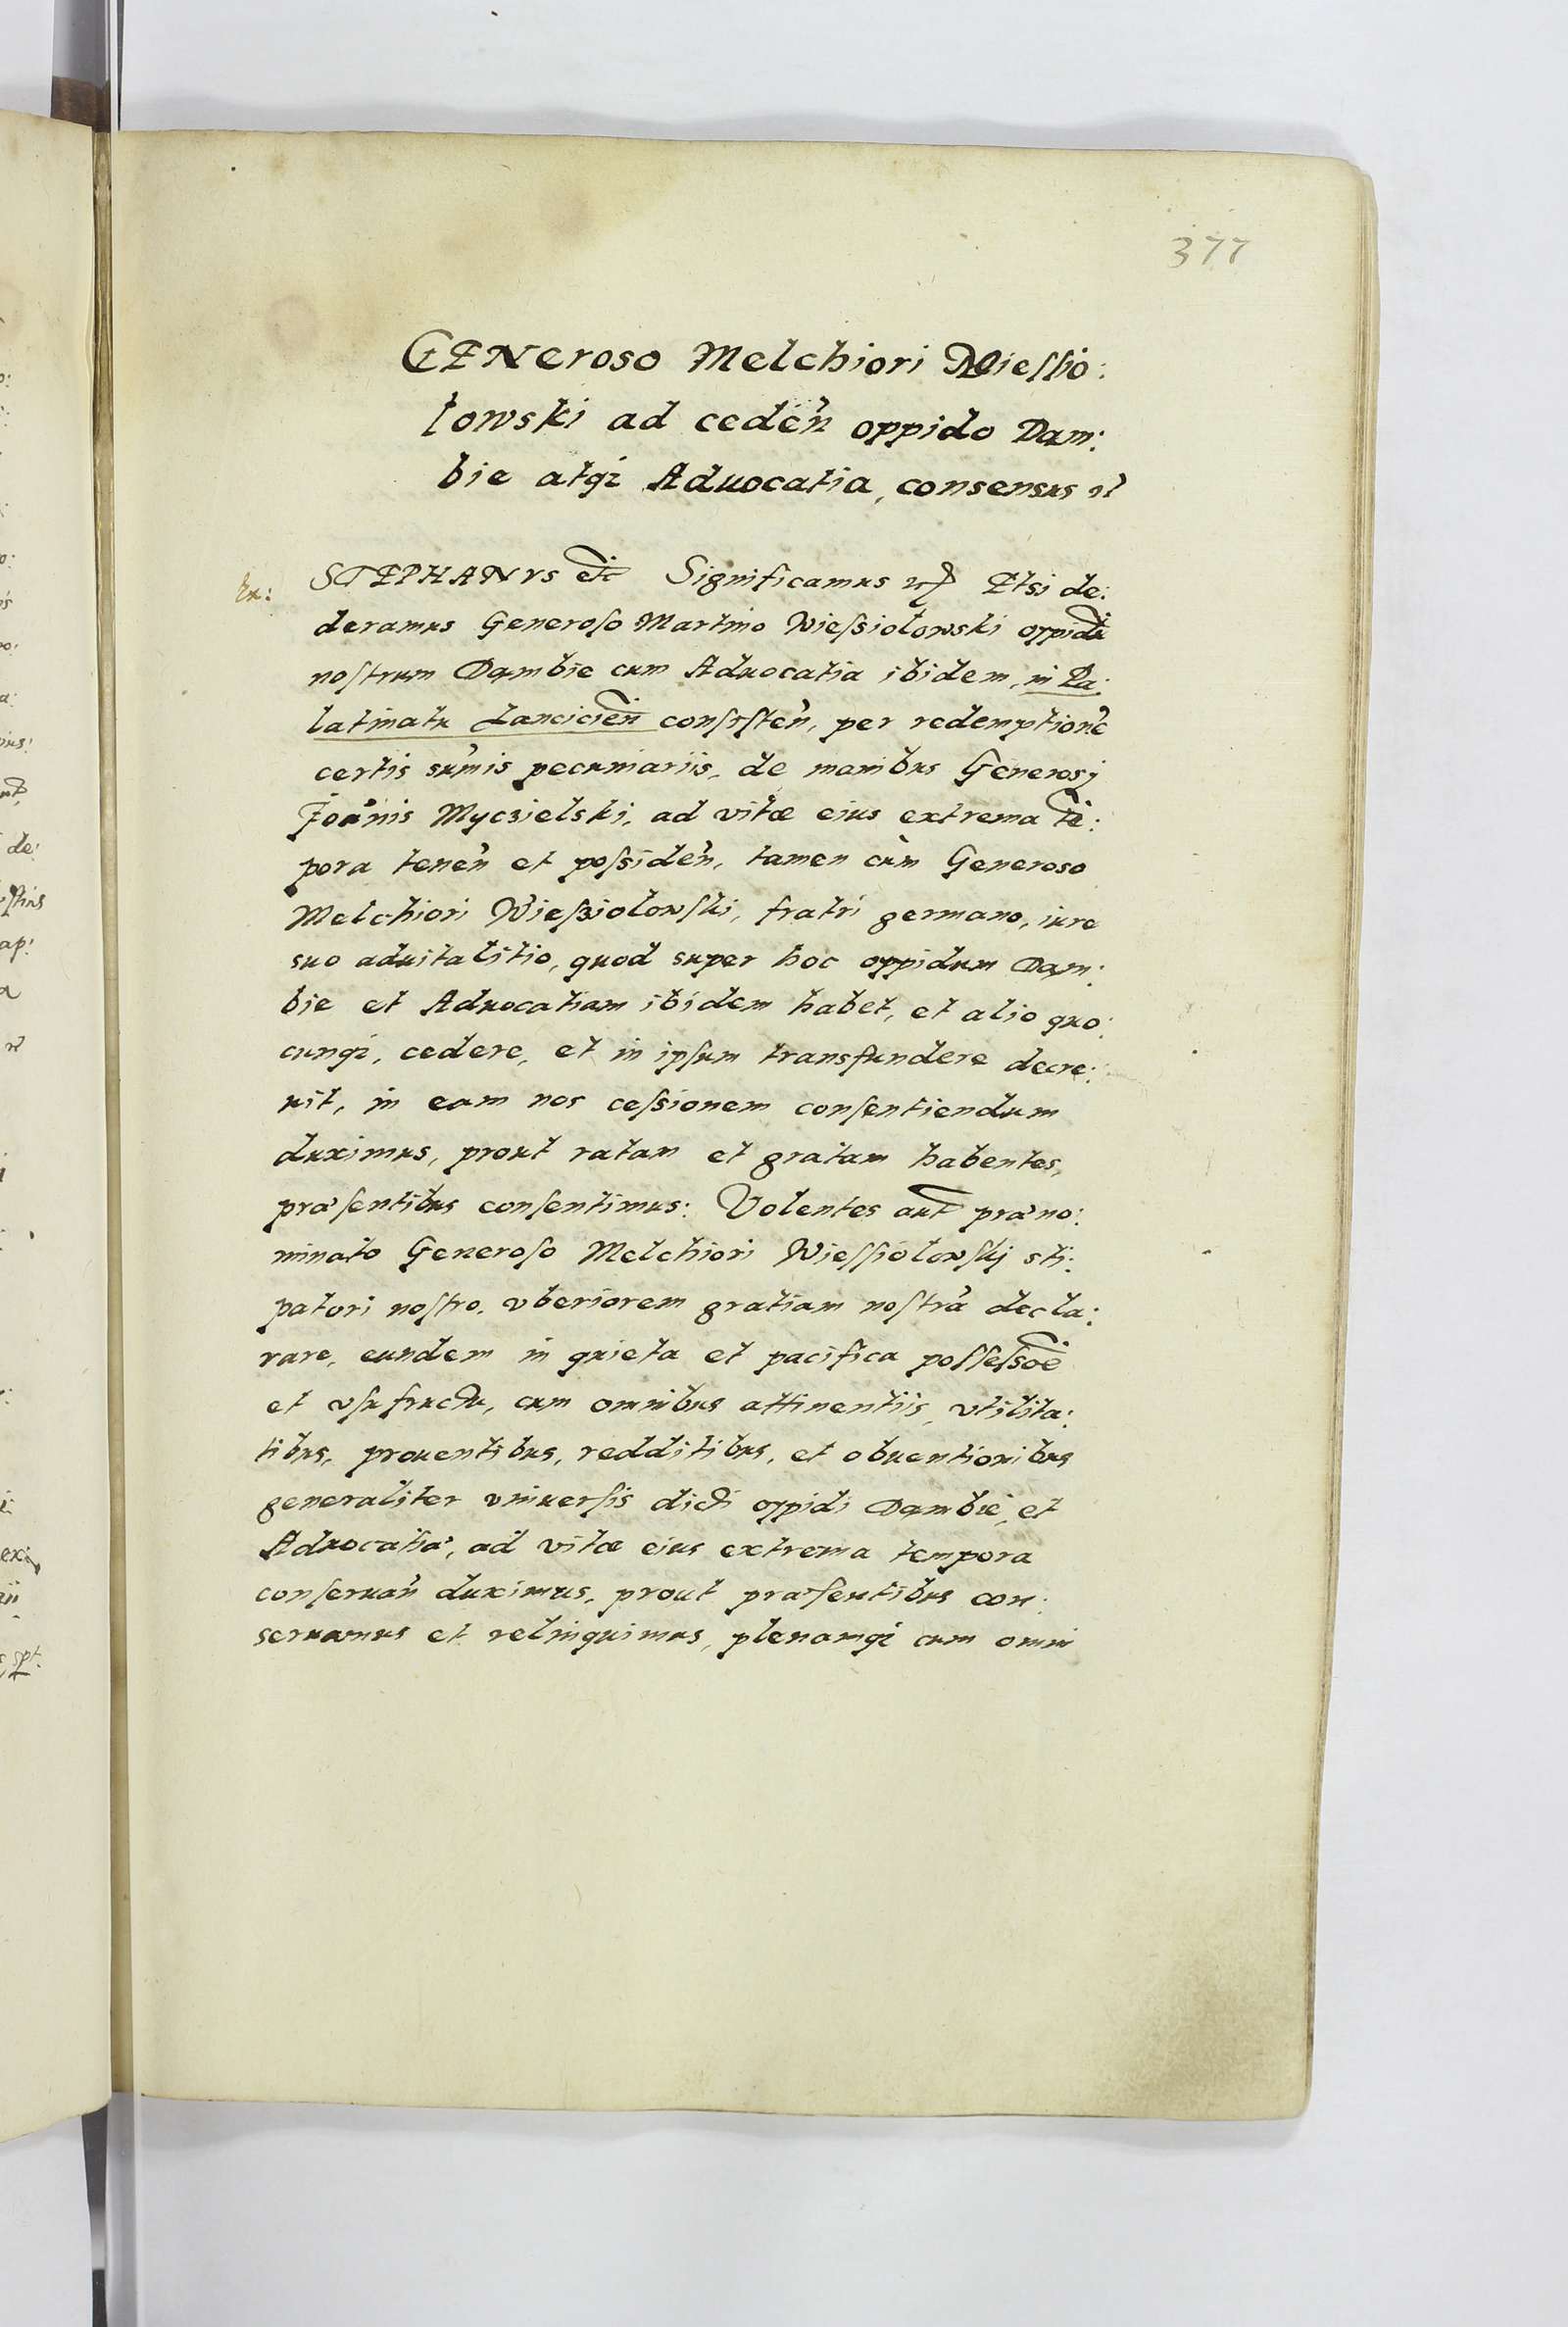 377
GENeroso Melchiori Wiessio:
łowski ad cedeñ oppido Dąm:
bie atqȝ Aduocatia, consensus
Ex: STEPHANVS etc Significamus Etsi de:
deramus Generoso Martino Wiessiołowski oppidū
nostrum Dąmbie cum Aduocatia ibidem, in Pa:
latinatu Lancicień consisteñ, per redemptionē
certis sum̃is pecuniariis, de manibus Generosj
Joānis Myczielski, ad vitæ eius extrema tē:
pora teneñ et possideñ, tamen cùm Generoso
Melchiori Wiesziołowski, fratri germano, iure
suo aduitalitio, quod super hoc oppidum Dąm:
bie et Aduocatiam ibidem habet, et alio quo:
cunqȝ, cedere, et in ipsum transfundere decre:
uit, in eam nos cessionem consentiendum
duximus, prout ratam et gratam habentes,
præsentibus consentimus: Volentes aut̃ præno:
minato Generoso Melchiori Wiessiołowskj sti:
patori nostro, vberiorem gratiam nostrā decla:
rare, eundem in quieta et pacifica possessōē
et vsufructu, cum omnibus attinentiis, vtilita:
tibus, prouentibus, redditibus, et obuentionibus
generaliter vniuersis dicti oppidi Dąmbie, et
Aduocatiæ, ad vitæ eius extrema tempora
conseruañ duximus, prout præsentibus con:
seruamus et relinquimus, plenamqȝ cum omni